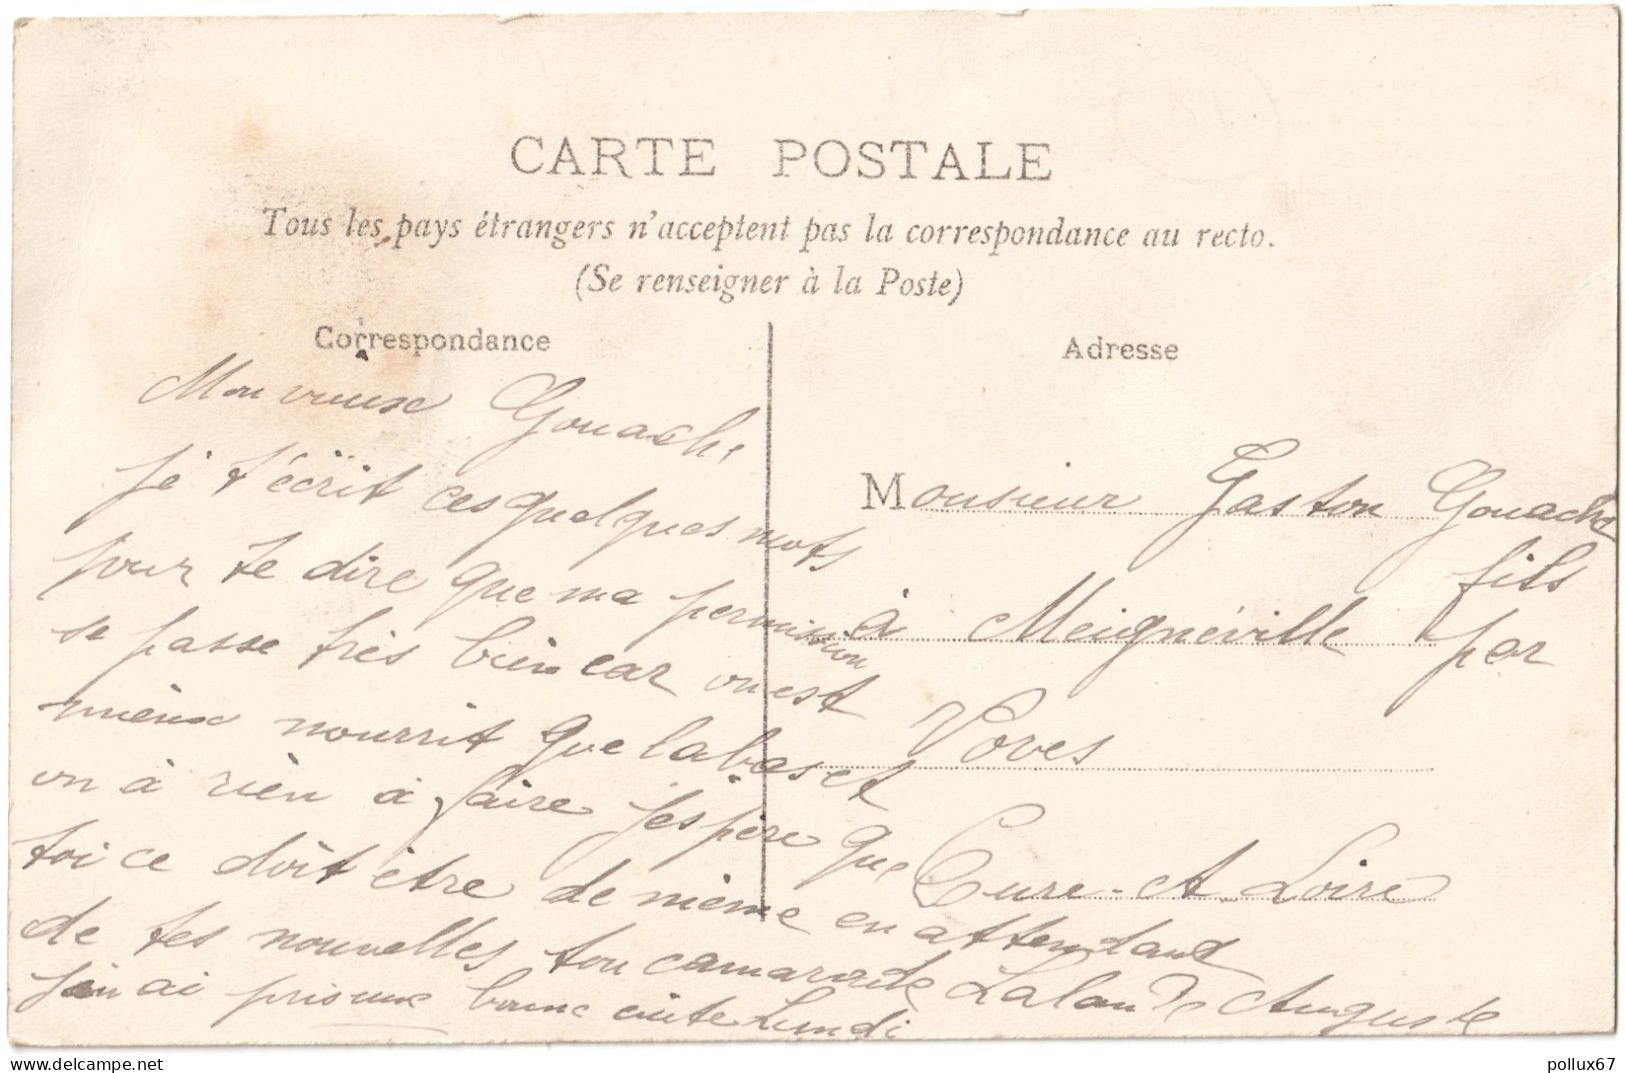 CARTE POSTALE
Tous les pays étrangers n'acceptent pas la correspondance au recto.
(Se renseigner à la Poste)
Correspondance
Mon vieux Gouache
je t'écrit ces quelques mots
pour te dire que ma permission
se passe très bien car on est
mieux nourrit que labas et
on à rien à faire j'espère que
toi ce doit être de même en attendant
de tes nouvelles ton camarade Lalande Auguste
j'en ai pris une bonne cuite Lundi
Adresse
Monsieur Gaston Gouache
fils
à Meignéville par
Voves
Eure-et-Loire
pollux67